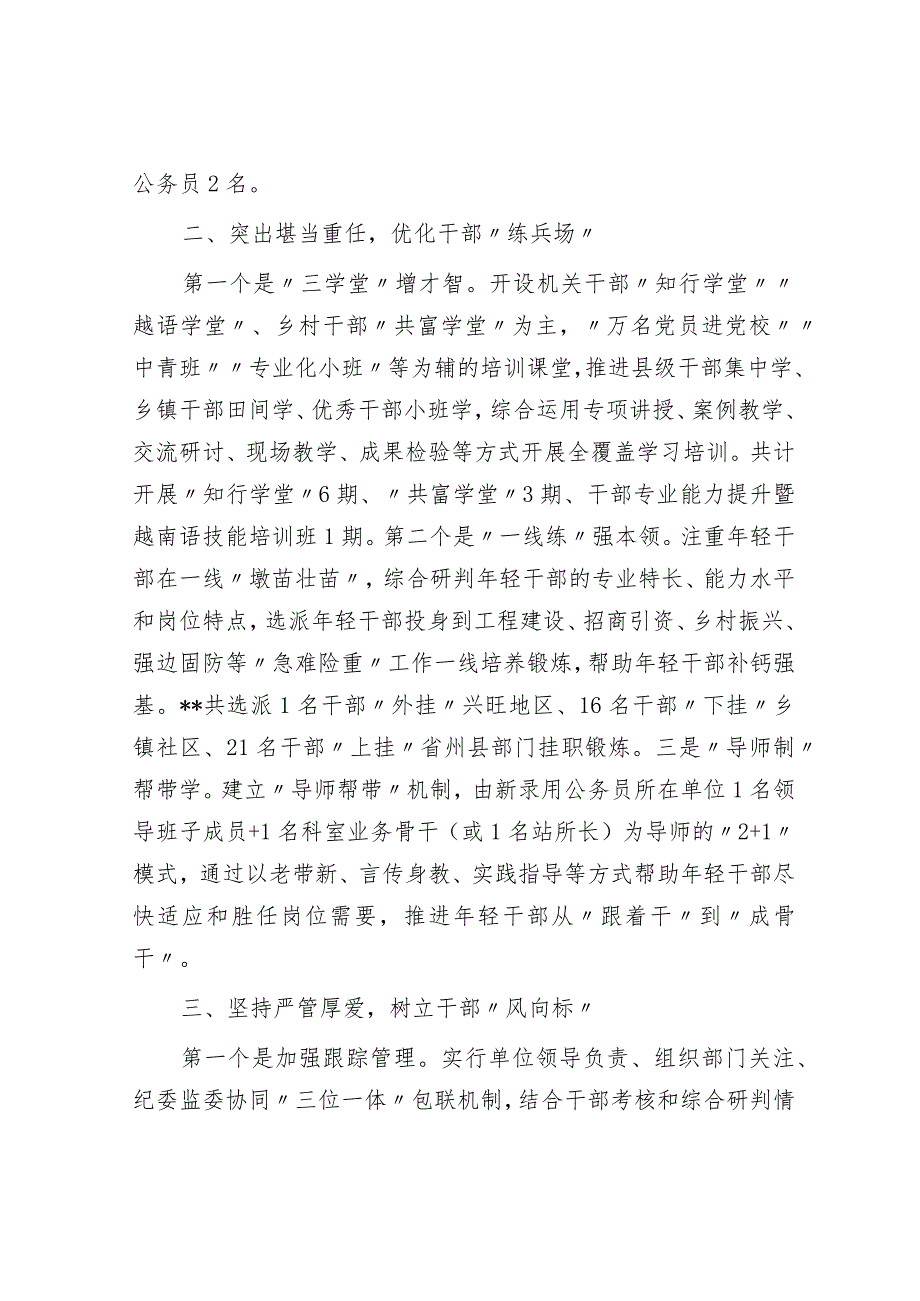 公务员2名。
二、突出堪当重任，优化干部〃练兵场〃
第一个是〃三学堂〃增才智。开设机关干部〃知行学堂〃〃
越语学堂〃、乡村干部〃共富学堂〃为主，〃万名党员进党校〃〃
中青班〃〃专业化小班〃等为辅的培训课堂，推进县级干部集中学、
乡镇干部田间学、优秀干部小班学，综合运用专项讲授、案例教学、
交流研讨、现场教学、成果检验等方式开展全覆盖学习培训。共计
开展〃知行学堂〃6期、〃共富学堂〃3期、干部专业能力提升暨
越南语技能培训班1期。第二个是〃一线练〃强本领。注重年轻干
部在一线〃墩苗壮苗〃，综合研判年轻干部的专业特长、能力水平
和岗位特点，选派年轻干部投身到工程建设、招商引资、乡村振兴、
强边固防等〃急难险重〃工作一线培养锻炼，帮助年轻干部补钙强
基。**共选派1名干部〃外挂〃兴旺地区、16名干部〃下挂〃乡
镇社区、21名干部〃上挂〃省州县部门挂职锻炼。三是〃导师制〃
帮带学。建立〃导师帮带〃机制，由新录用公务员所在单位1名领
导班子成员+1名科室业务骨干（或1名站所长）为导师的〃2+1〃
模式，通过以老带新、言传身教、实践指导等方式帮助年轻干部尽
快适应和胜任岗位需要，推进年轻干部从〃跟着干〃到〃成骨
干〃。
三、坚持严管厚爱，树立干部〃风向标〃
第一个是加强跟踪管理。实行单位领导负责、组织部门关注、
纪委监委协同〃三位一体〃包联机制，结合干部考核和综合研判情